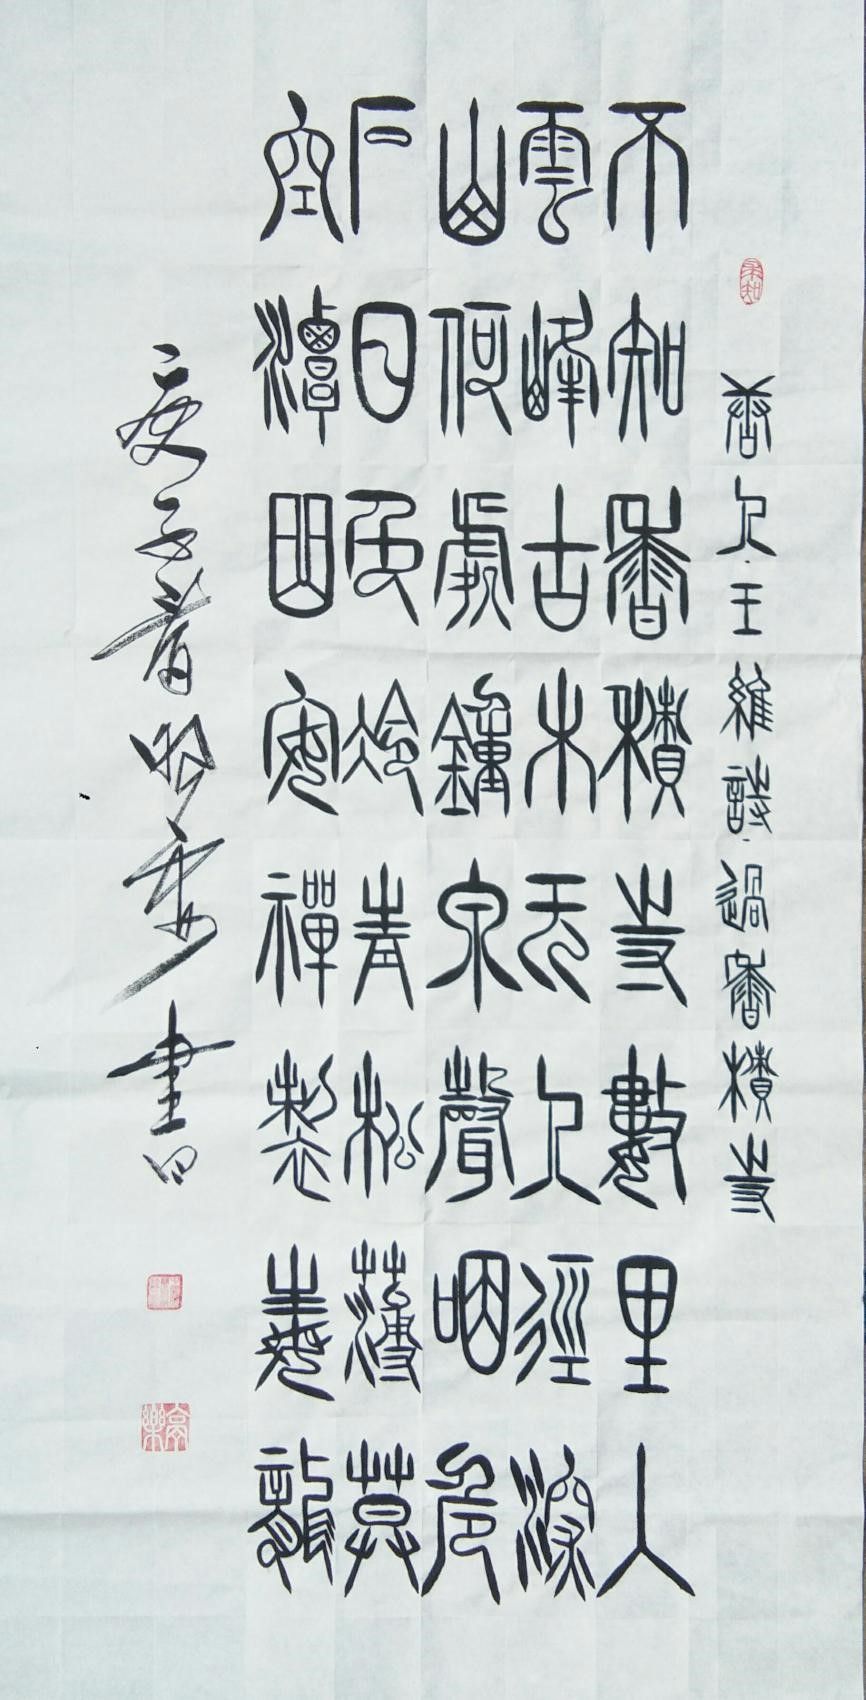 唐人·王維詩·過香積寺
不知香積寺數里入
雲峰古木无人徑深
山何處鐘泉聲咽危
石日色冷青松薄莫
空潭曲安禪製毒龍
庚子春書